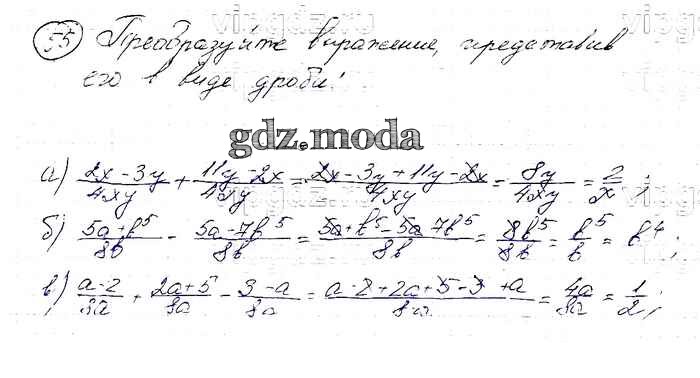 55 Преобразуйте выражение, представив
его в виде дроби:
gdz.moda
а) (2x - 3y)/(4xy) + (11y - 2x)/(4xy) = (2x - 3y + 11y - 2x)/(4xy) = 8y/(4xy) = 2/x ;
б) (5a + b^5)/(8b) - (5a - 7b^5)/(8b) = (5a + b^5 - 5a 7b^5)/(8b) = 8b^5/(8b) = b^5/b = b^4 ;
в) (a - 2)/(8a) + (2a + 5)/(8a) - (3 - a)/(8a) = (a - 2 + 2a + 5 - 3 + a)/(8a) = 4a/(8a) = 1/2 ;